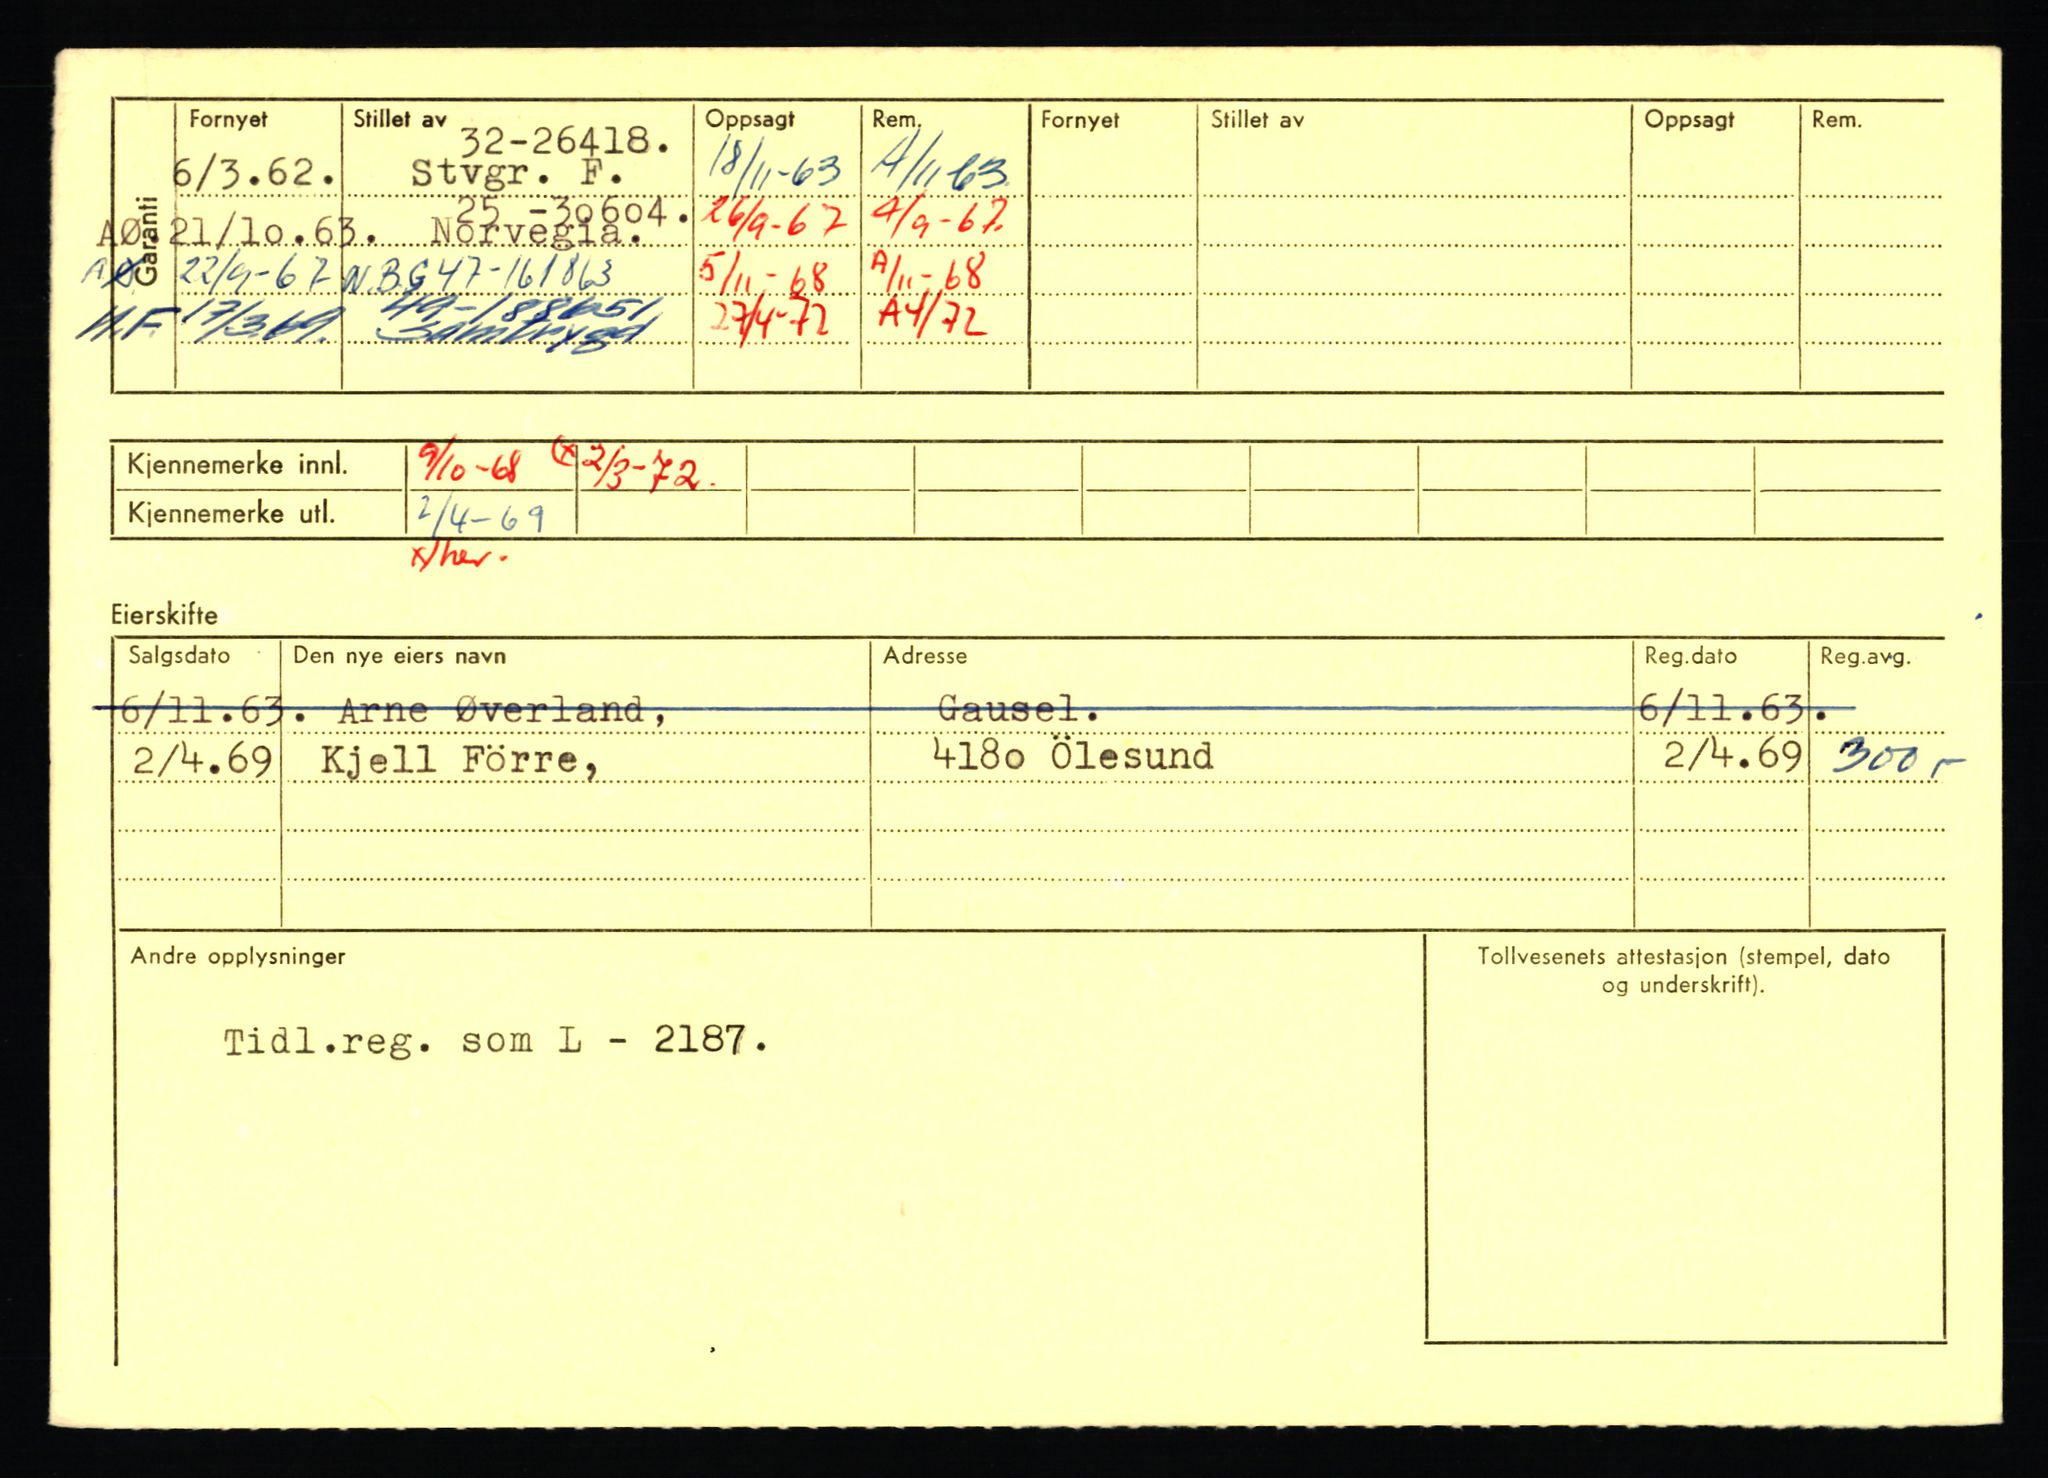 Garanti
Fornyet Stillet av Oppsagt Rem. Fornyet Stillet av Oppsagt Rem.
32-26418.
6/3.62. Stvgr. F. 18/11-63 A/11 63.
25 -30604.
AØ.21/10.63. Norvegia. 26/9-67 A/9-67.
AØ 22/9-67 N.B.G 47-161863 5/11-68 A/11-68
49-188651
H.F. 17/3.69. Samtrygd 27/4-72 A4/72
Kjennemerke innl. 9/10-68 (x 2/3-72.
Kjennemerke utl. 2/4-69
x/her.
Eierskifte
Salgsdato Den nye eiers navn Adresse Reg.dato Reg.avg.
6/11.63. Arne Øverland, Gausel. 6/11.63.
2/4.69 Kjell Förre, 4180 Ölesund 2/4.69 300,-
Andre opplysninger Tollvesenets attestasjon (stempel, dato
og underskrift).
Tidl.reg. som L - 2187.